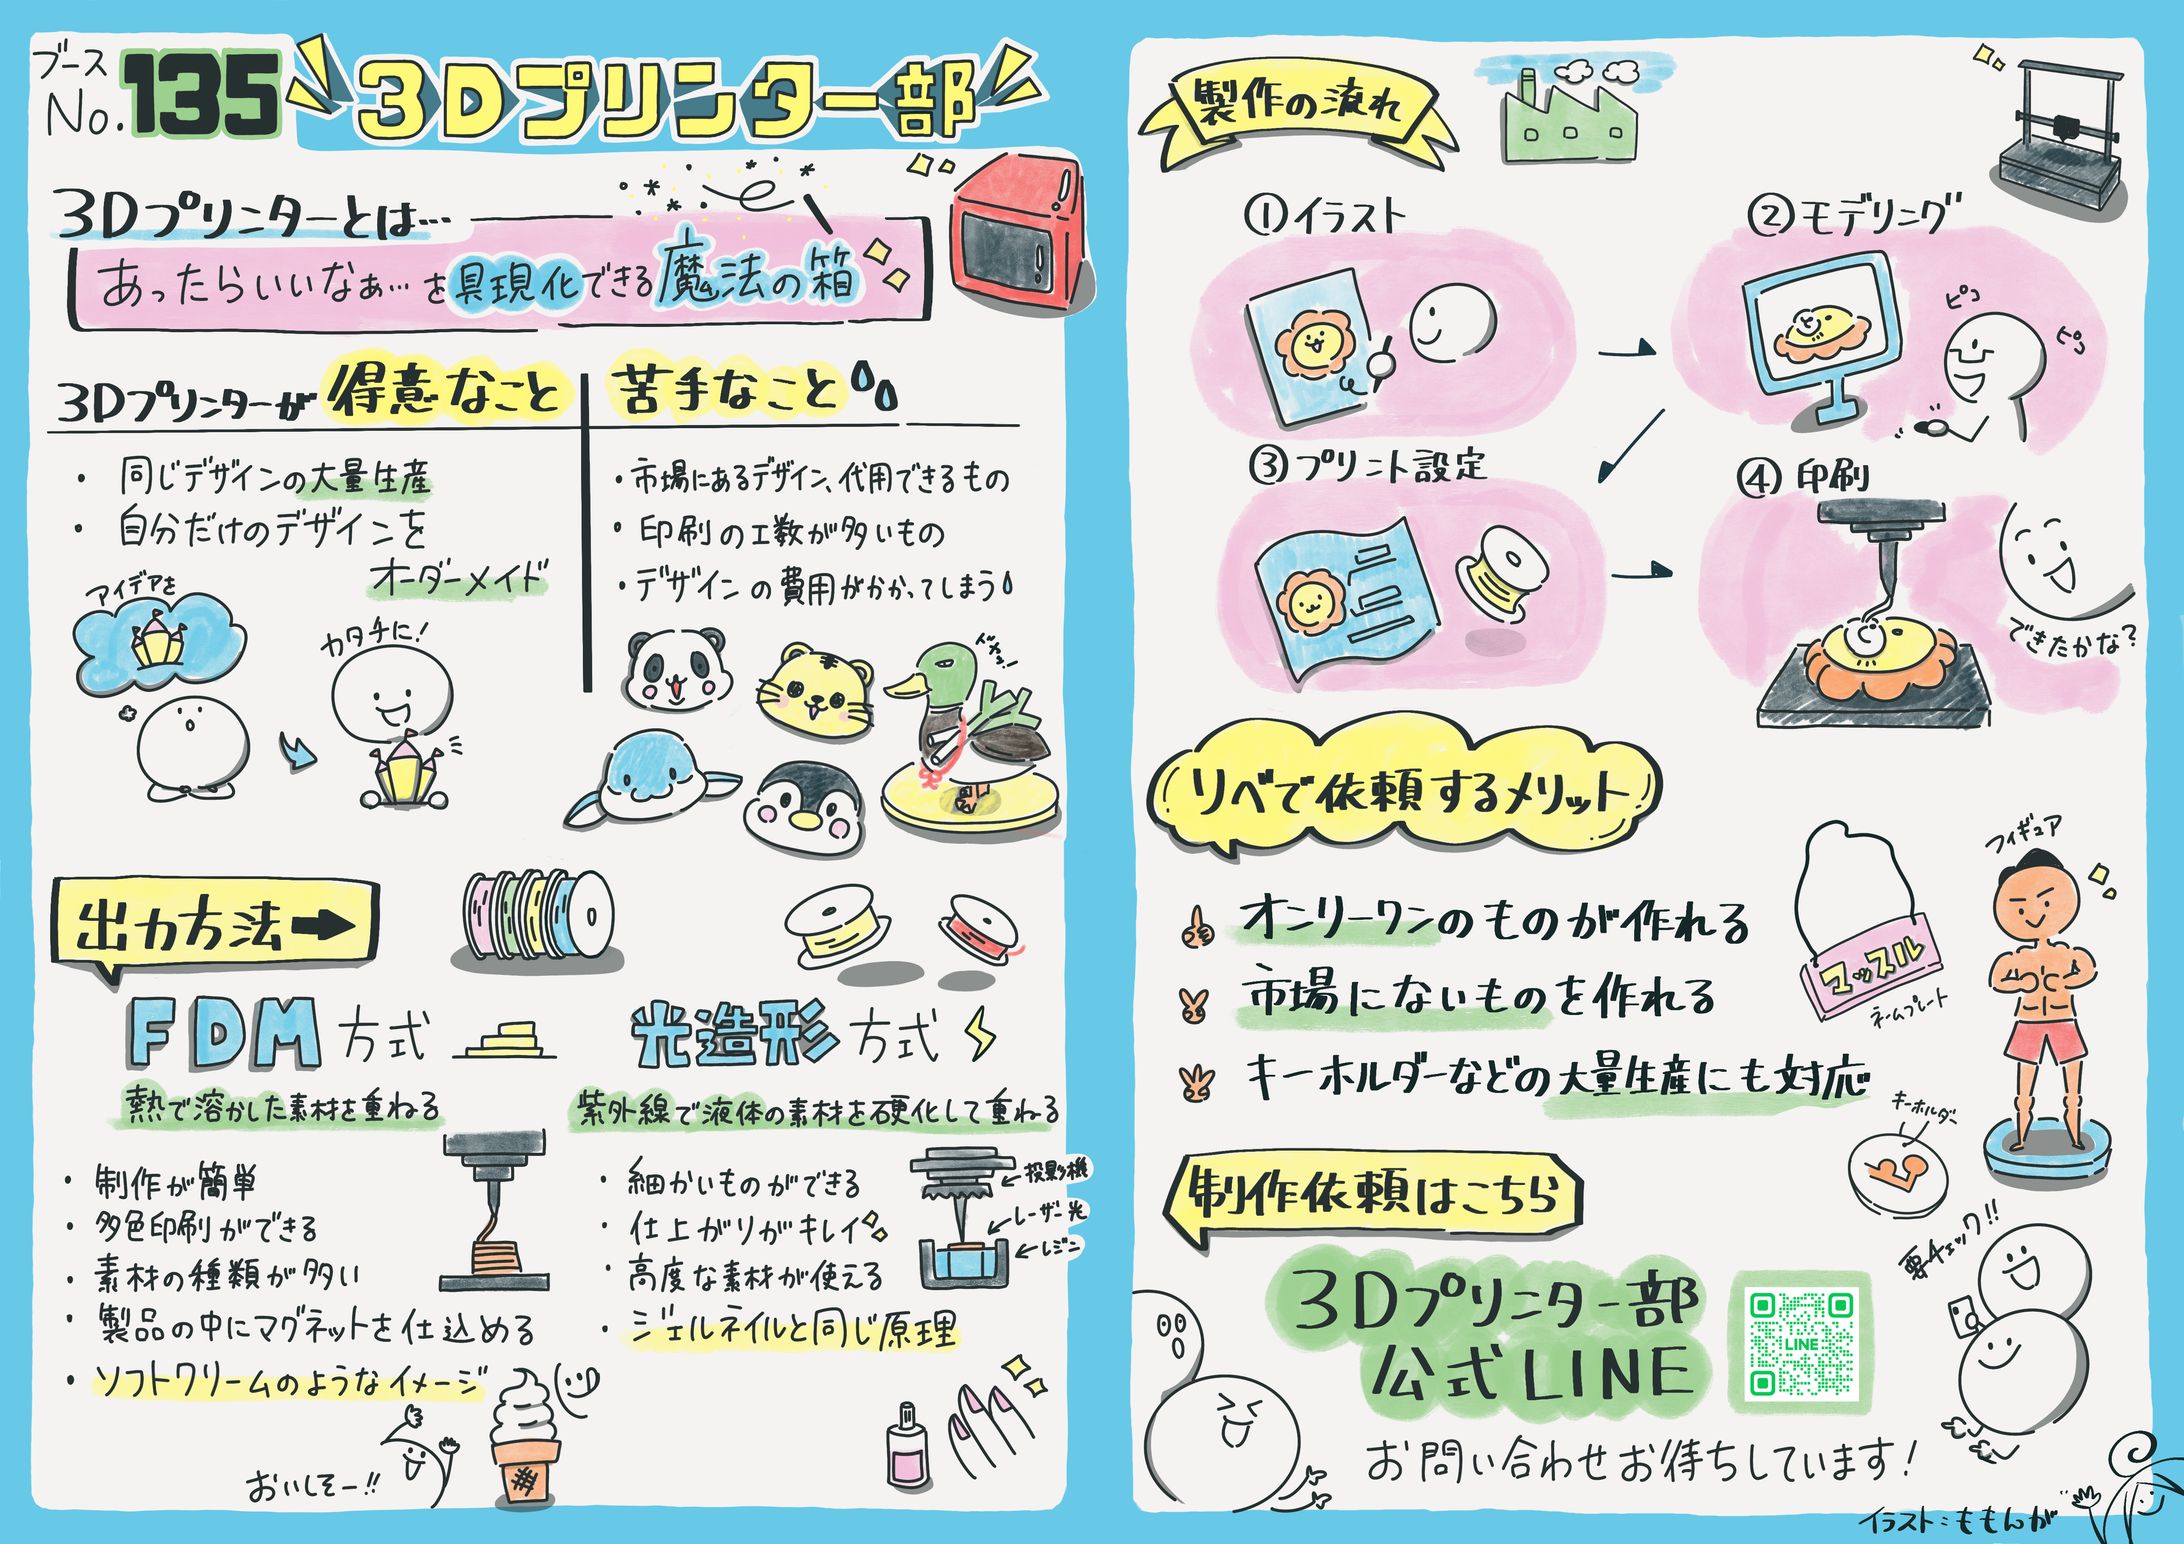 ブース
No.135
3Dプリンター部
3Dプリンターとは…
あったらいいなぁ…を具現化できる魔法の箱
3Dプリンターが得意なこと
・同じデザインの大量生産
・自分だけのデザインを
オーダーメイド
アイデアを
カタチに!
苦手なこと
・市場にあるデザイン、代用できるもの
・印刷の工数が多いもの
・デザインの費用がかかってしまう
出力方法→
FDM方式
熱で溶かした素材を重ねる
・制作が簡単
・多色印刷ができる
・素材の種類が多い
・製品の中にマグネットを仕込める
・ソフトクリームのようなイメージ
おいしそー!!
光造形方式
紫外線で液体の素材を硬化して重ねる
・細かいものができる
・仕上がりがキレイ
・高度な素材が使える
・ジェルネイルと同じ原理
投影機
レーザー光
レジン
製作の流れ
①イラスト
②モデリング
ピコ
ピコ
③プリント設定
④印刷
できたかな?
リベで依頼するメリット
オンリーワンのものが作れる
市場にないものを作れる
キーホルダーなどの大量生産にも対応
マッスル
ネームプレート
フィギュア
キーホルダー
制作依頼はこちら
3Dプリンター部
公式LINE
LINE
要チェック!!
お問い合わせお待ちしています!
イラスト:ももんが